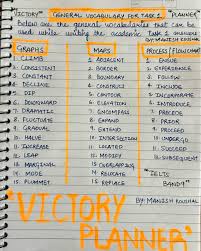 "VICTORY" GENERAL VOCABULARY FOR TASK 1 PLANNER"
Below are the general vocabularies that can be
used while writing the academic Task 1 answers
BY: MANISH KOUSHAL
GRAPHS
1. CLIMB
2. CONSISTENT
3. CONSTANT
4. DECLINE
5. DIP
6. DOWNWARD
7. DRAMATIC
8. FLUCTUATE
9. GRADUAL
10. GROWTH
11. HALVE
12. INCREASE
13. LEAP
14. MARGINAL
15. MODE
16. PLUMMET
MAPS
1. ADJACENT
2. BORDER
3. BOUNDARY
4. CONSTRUCT
5. CONTRACT
6. ELEVATION
7. EXPAND
8. EXTEND
9. INTERSECTION
10. LOCATION
11. MODIFY
12. OVERLAPPING
13. RELOCATE
14. REPLACE
PROCESS (FLOWCHART
1. ENSUE
2. EXPERIENCE
3. FOLLOW
4. INCLUDE
5. INVOLVE
7. PRECEDE
8. PROCEED
9. UNDERGO
10. SUCCEED
11. SUBSEQUENT
"IELTS
BAND9"
BY: MANISH KOUSHAL
"VICTORY
PLANNER"